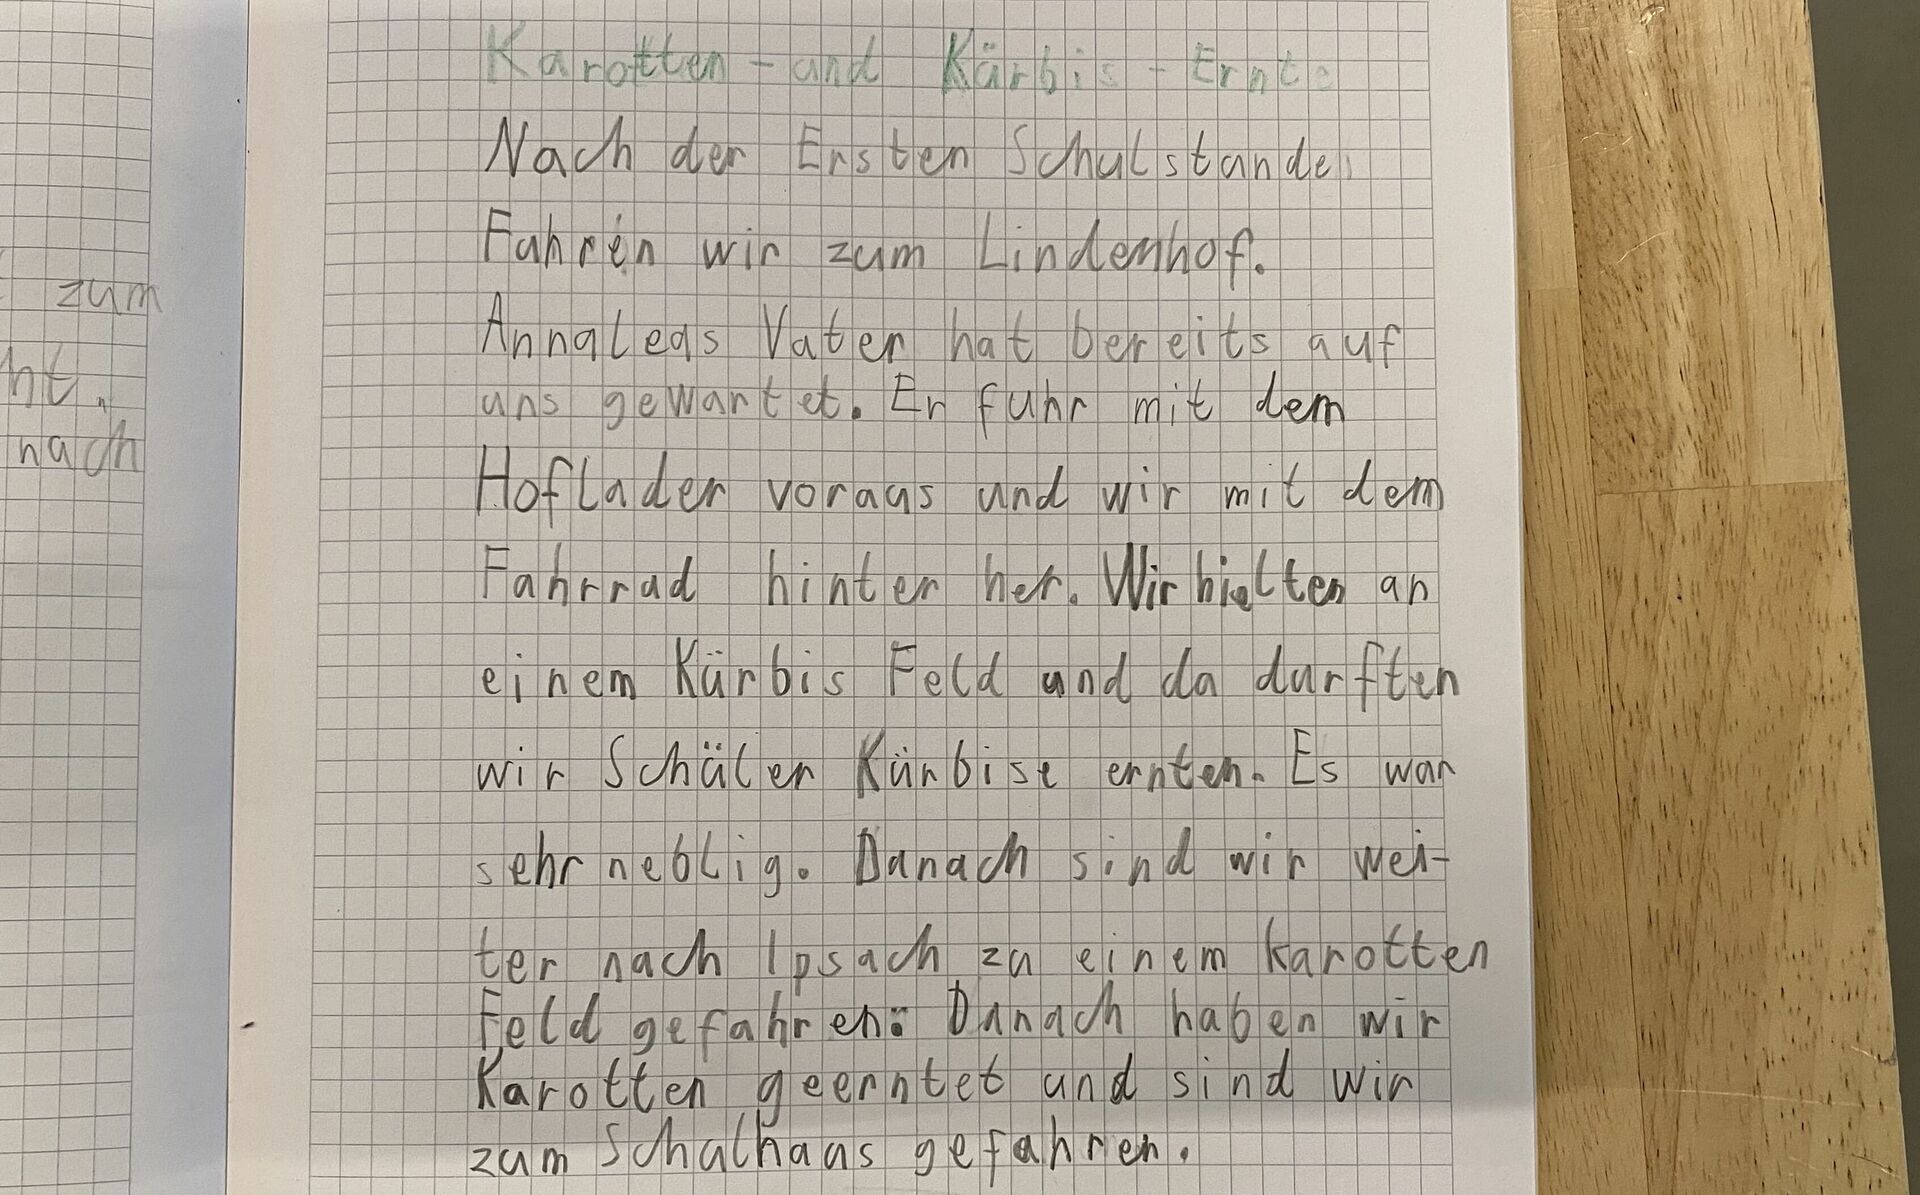 Karotten-und Kürbis-Ernte
Nach der Ersten Schulstunde
Fahren wir zum Lindenhof.
Annaleas Vater hat bereits auf
uns gewartet. Er fuhr mit dem
Hoflader voraus und wir mit dem
Fahrrad hinter her. Wir hielten an
einem Kürbis Feld und da durften
wir Schüler Kürbise ernten. Es war
sehr neblig. Danach sind wir wei-
ter nach Ipsach zu einem Karotten
Feld gefahren. Danach haben wir
Karotten geerntet und sind wir
zum Schulhaus gefahren.
zum
nach